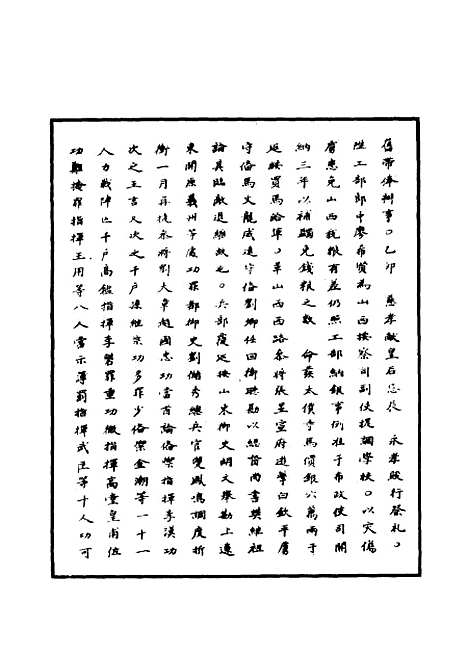 舊帶俸辦事○乙卯　慈孝獻皇后忌辰　永孝殿行祭礼○
陞工部郎中廖希賢為山西按察司副使提調學校○以災傷
詹惠免山西稅粮有差仍照工部納銀事例准于布政使司開
納三年以補蠲免錢粮之數　命發太僕寺馬價銀六萬兩于
延綏買馬給軍○革山西西路參將張星宣府遊擊白欽平虜
守俻馬文龍威遠守俻劉卿任回衛聽勘以總督尚書樊繼祖
論其臨敵退縮故也○兵部覆巡按山東御史胡文舉勘上遼
東開原義州等處功罪都御史劉儲秀總兵官雙鳳鳴調度折
衝一月再捷永將劉大章趙國忠功當首論俻禦指揮李漢功
次之王言又次之千戶凍維宗功多罪少俻禦金潮等一十一
人力戰陣亡千戶高鑑指揮李磐罪重功微指揮高童皇甫位
功難掩罪指揮王用等八人當示薄罰指揮武臣等十人功可